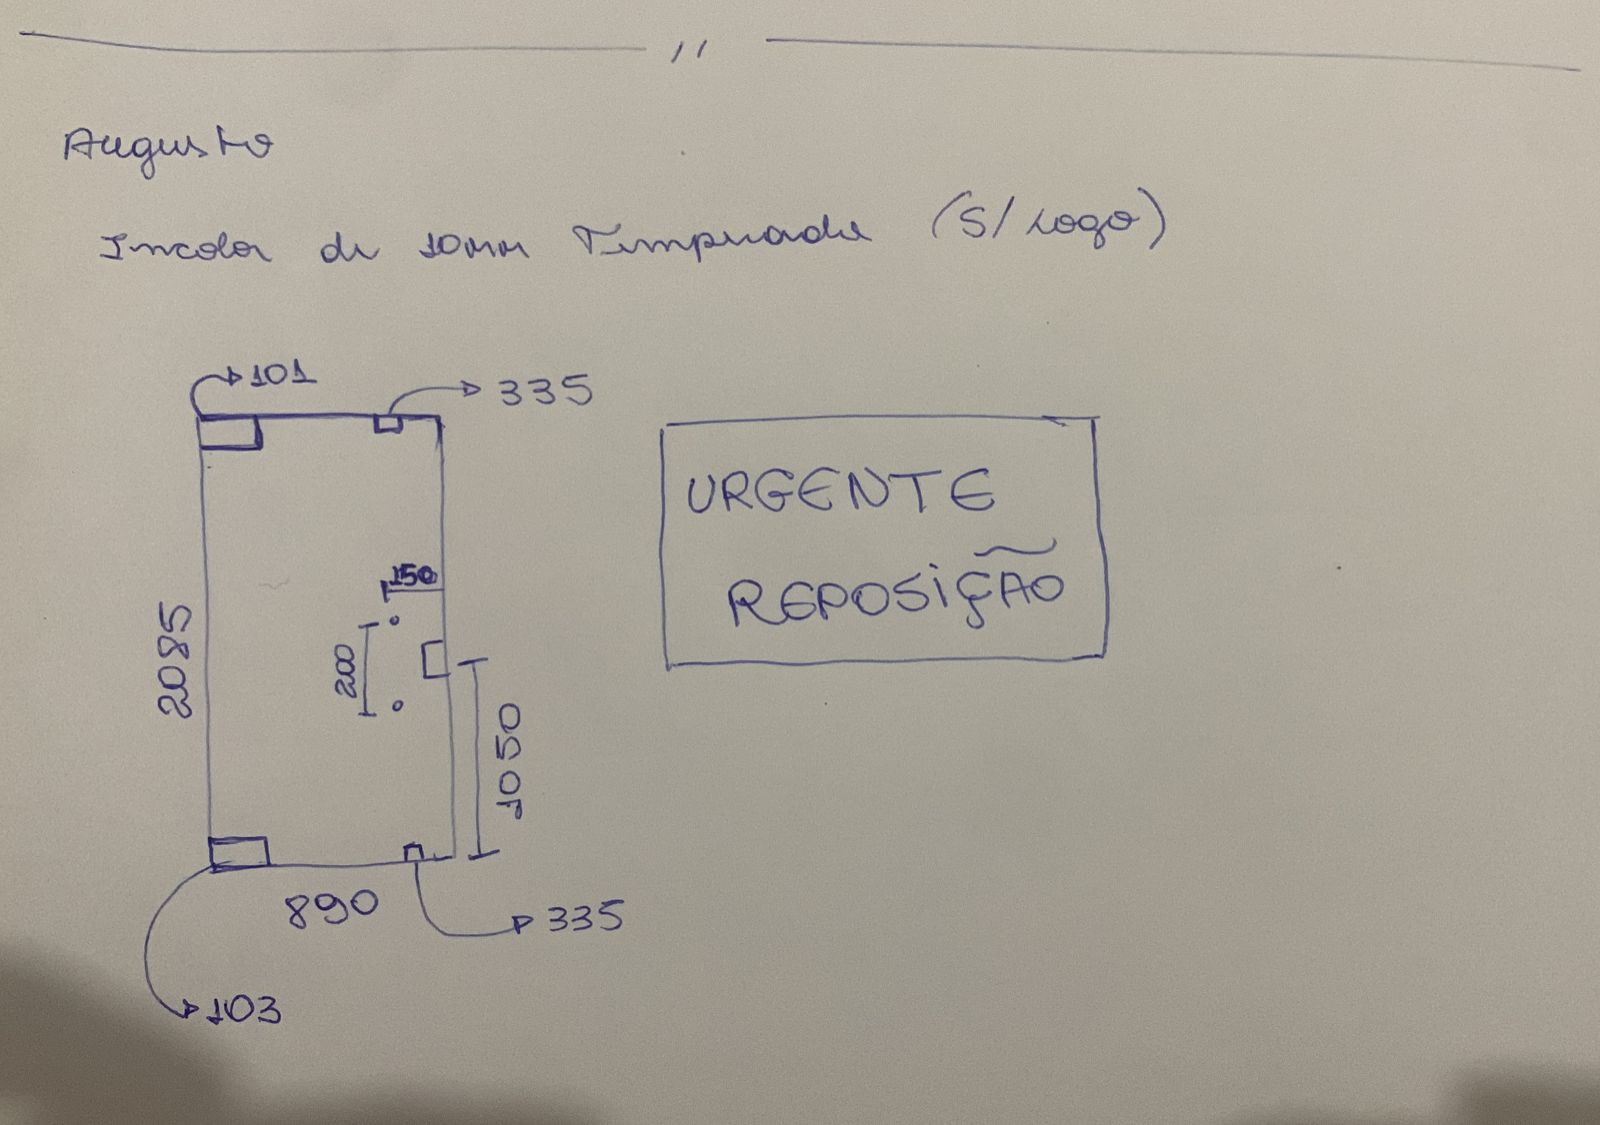 Augusto
Incolor de 10mm Temperado (S/ Logo)
101
335
URGENTE
REPOSIÇÃO
150
200
2085
1050
890
335
103